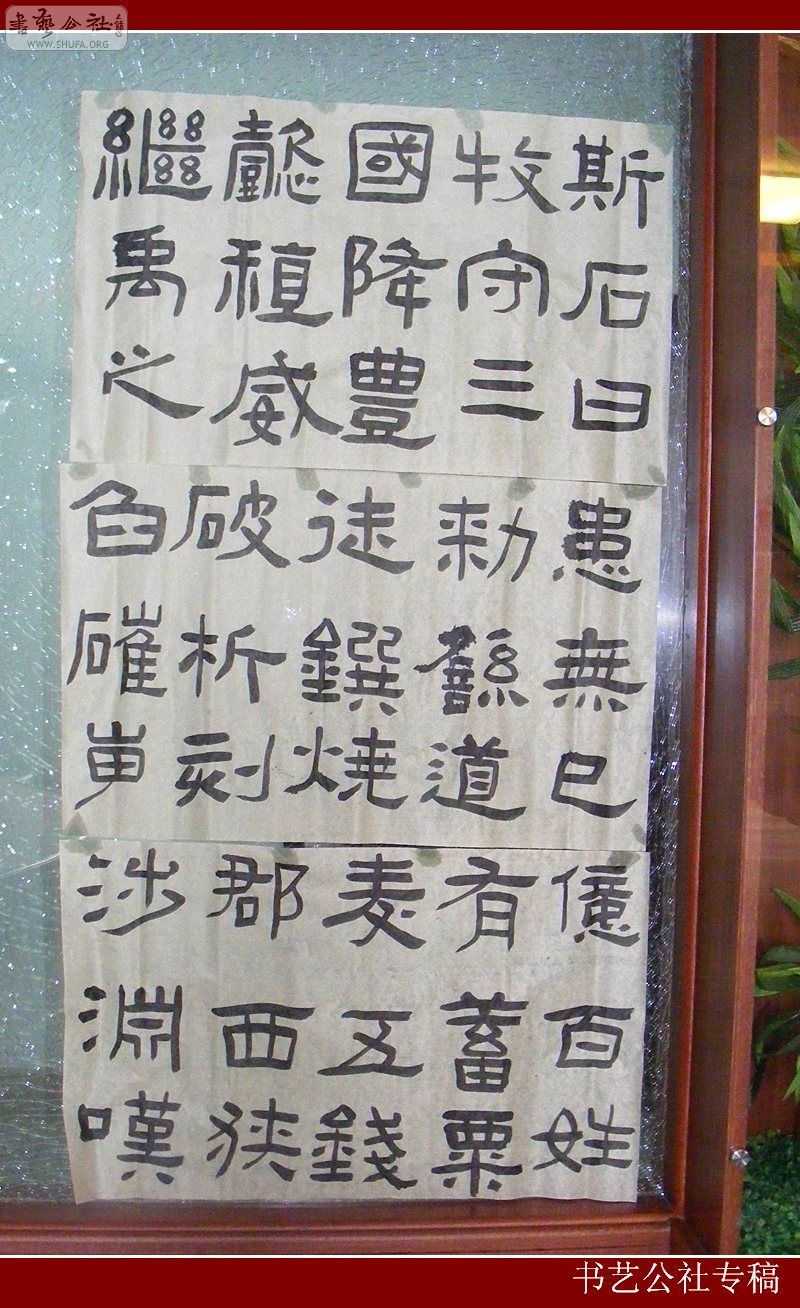 書藝公社
WWW.SHUFA.ORG
斯石曰
牧守三
國降豊
懿稙威
繼禹之
患無已
勅繇道
徒鐉燒
破析刻
臽磪嵬
億百姓
有蓄粟
麦五錢
郡西狭
涉淵嘆
书艺公社专稿